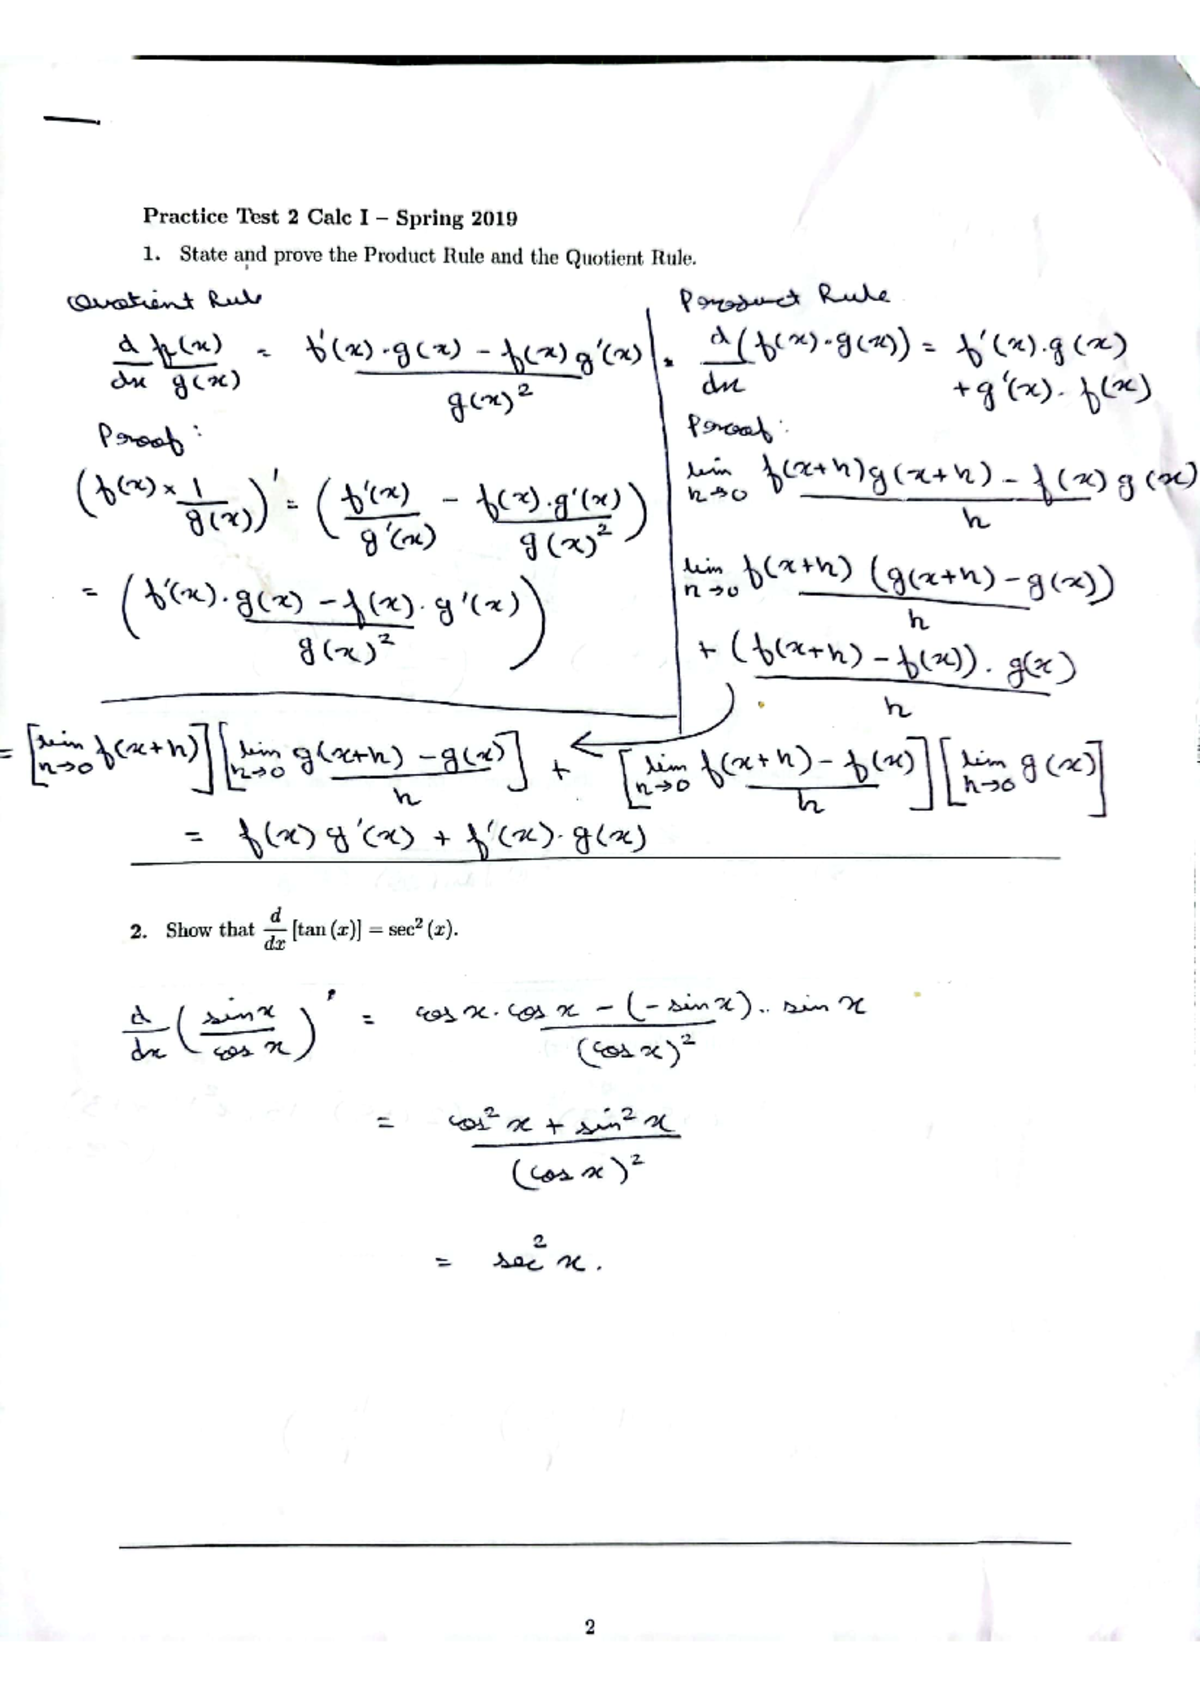 Practice Test 2 Calc I – Spring 2019
1. State and prove the Product Rule and the Quotient Rule.
Quotient Rule
d/dx f(x)/g(x) = f'(x)·g(x) - f(x)g'(x) / g(x)²
Proof:
(f(x) × 1/g(x))' = (f'(x)/g'(x) - f(x)·g'(x)/g(x)²)
= (f'(x)·g(x) - f(x)·g'(x) / g(x)²)
Product Rule
d/dx (f(x)·g(x)) = f'(x)·g(x)
+ g'(x)·f(x)
Proof:
lim h→0 f(x+h)g(x+h) - f(x)g(x) / h
lim h→0 f(x+h) (g(x+h) - g(x)) / h
+ (f(x+h) - f(x))·g(x) / h
= [lim h→0 f(x+h)] [lim h→0 g(x+h) - g(x) / h] + [lim h→0 f(x+h) - f(x) / h] [lim h→0 g(x)]
= f(x)g'(x) + f'(x)·g(x)
2. Show that d/dx [tan (x)] = sec² (x).
d/dx (sin x / cos x)' = cos x · cos x - (-sin x)·· sin x / (cos x)²
= cos² x + sin² x / (cos x)²
= sec² x.
2